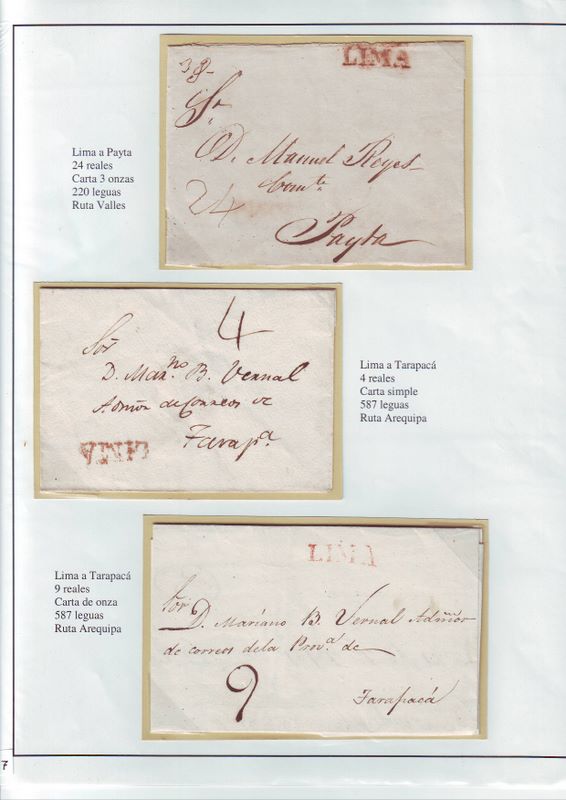 38-
LIMA
Sr
D. Manuel Reyes
Comte
24
Payta
Lima a Payta
24 reales
Carta 3 onzas
220 leguas
Ruta Valles
4
Sor
D. Marno B. Vernal
Admor de Correos de
Tarapa.
LIMA
Lima a Tarapacá
4 reales
Carta simple
587 leguas
Ruta Arequipa
LIMA
Sor
D. Mariano B. Vernal Admor
de correos de la Prova de
9
Tarapacá
Lima a Tarapacá
9 reales
Carta de onza
587 leguas
Ruta Arequipa
7